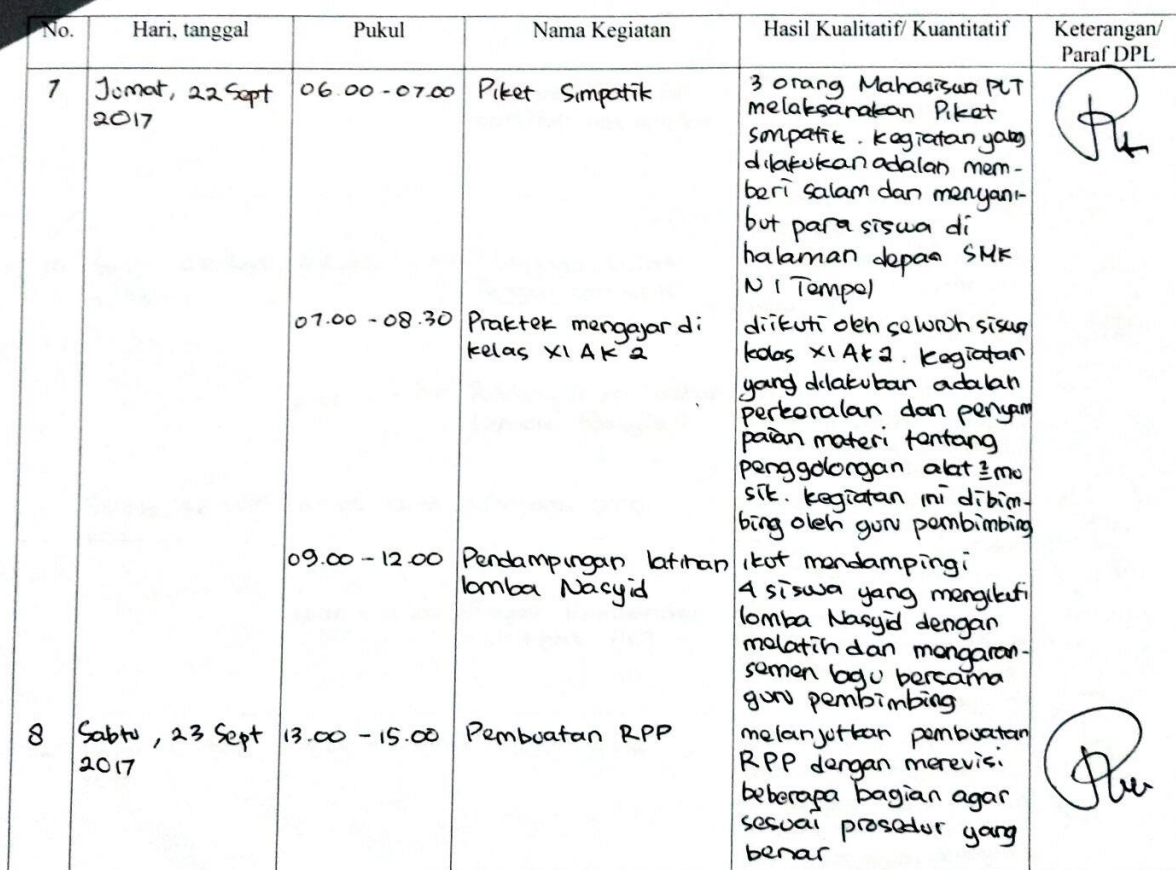 No. Hari, tanggal Pukul Nama Kegiatan Hasil Kualitatif/ Kuantitatif Keterangan/
Paraf DPL
7 Jumat, 22 Sept 06.00 - 07.00 Piket Simpatik 3 orang Mahasiswa PLT
2017 melaksanakan Piket
simpatik. kegiatan yang
dilakukan adalah mem-
beri salam dan menyam-
but para siswa di
halaman depan SMK
N 1 Tempel
07.00 - 08.30 Praktek mengajar di diikuti oleh seluruh siswa
kelas XI AK 2 kelas XI AK 2. Kegiatan
yang dilakukan adalah
perkenalan dan penyam
paian materi tentang
penggolongan alat mu
sik. kegiatan ini dibim-
bing oleh guru pembimbing
09.00 - 12.00 Pendampingan latihan ikut mendampingi
lomba Nasyid 4 siswa yang mengikuti
lomba Nasyid dengan
melatih dan mengaran-
semen lagu bersama
guru pembimbing
8 Sabtu, 23 Sept 13.00 - 15.00 Pembuatan RPP melanjutkan pembuatan
2017 RPP dengan merevisi
beberapa bagian agar
sesuai prosedur yang
benar